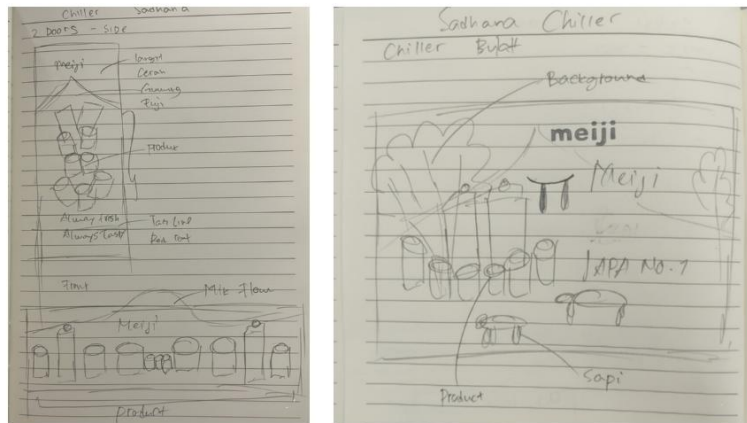 Chiller Sadhana
2 Doors - Side
Meiji
Langit
Cerah
Gunung
Fuji
Product
Always fresh
Tag Line
Always Tasty
Front
Milk Flow
Meiji
product
Sadhana Chiller
Chiller Bulat
Background
meiji
Meiji
JAPAN NO.1
Sapi
Product